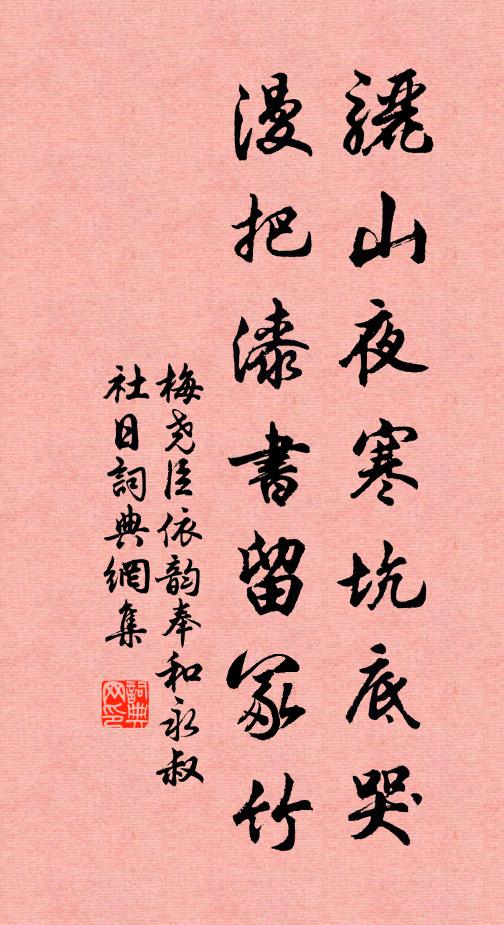 驪山夜寒坑底哭
漫把漆書留冢竹
梅尧臣依韵奉和永叔
社日詞典網集
詞典网印